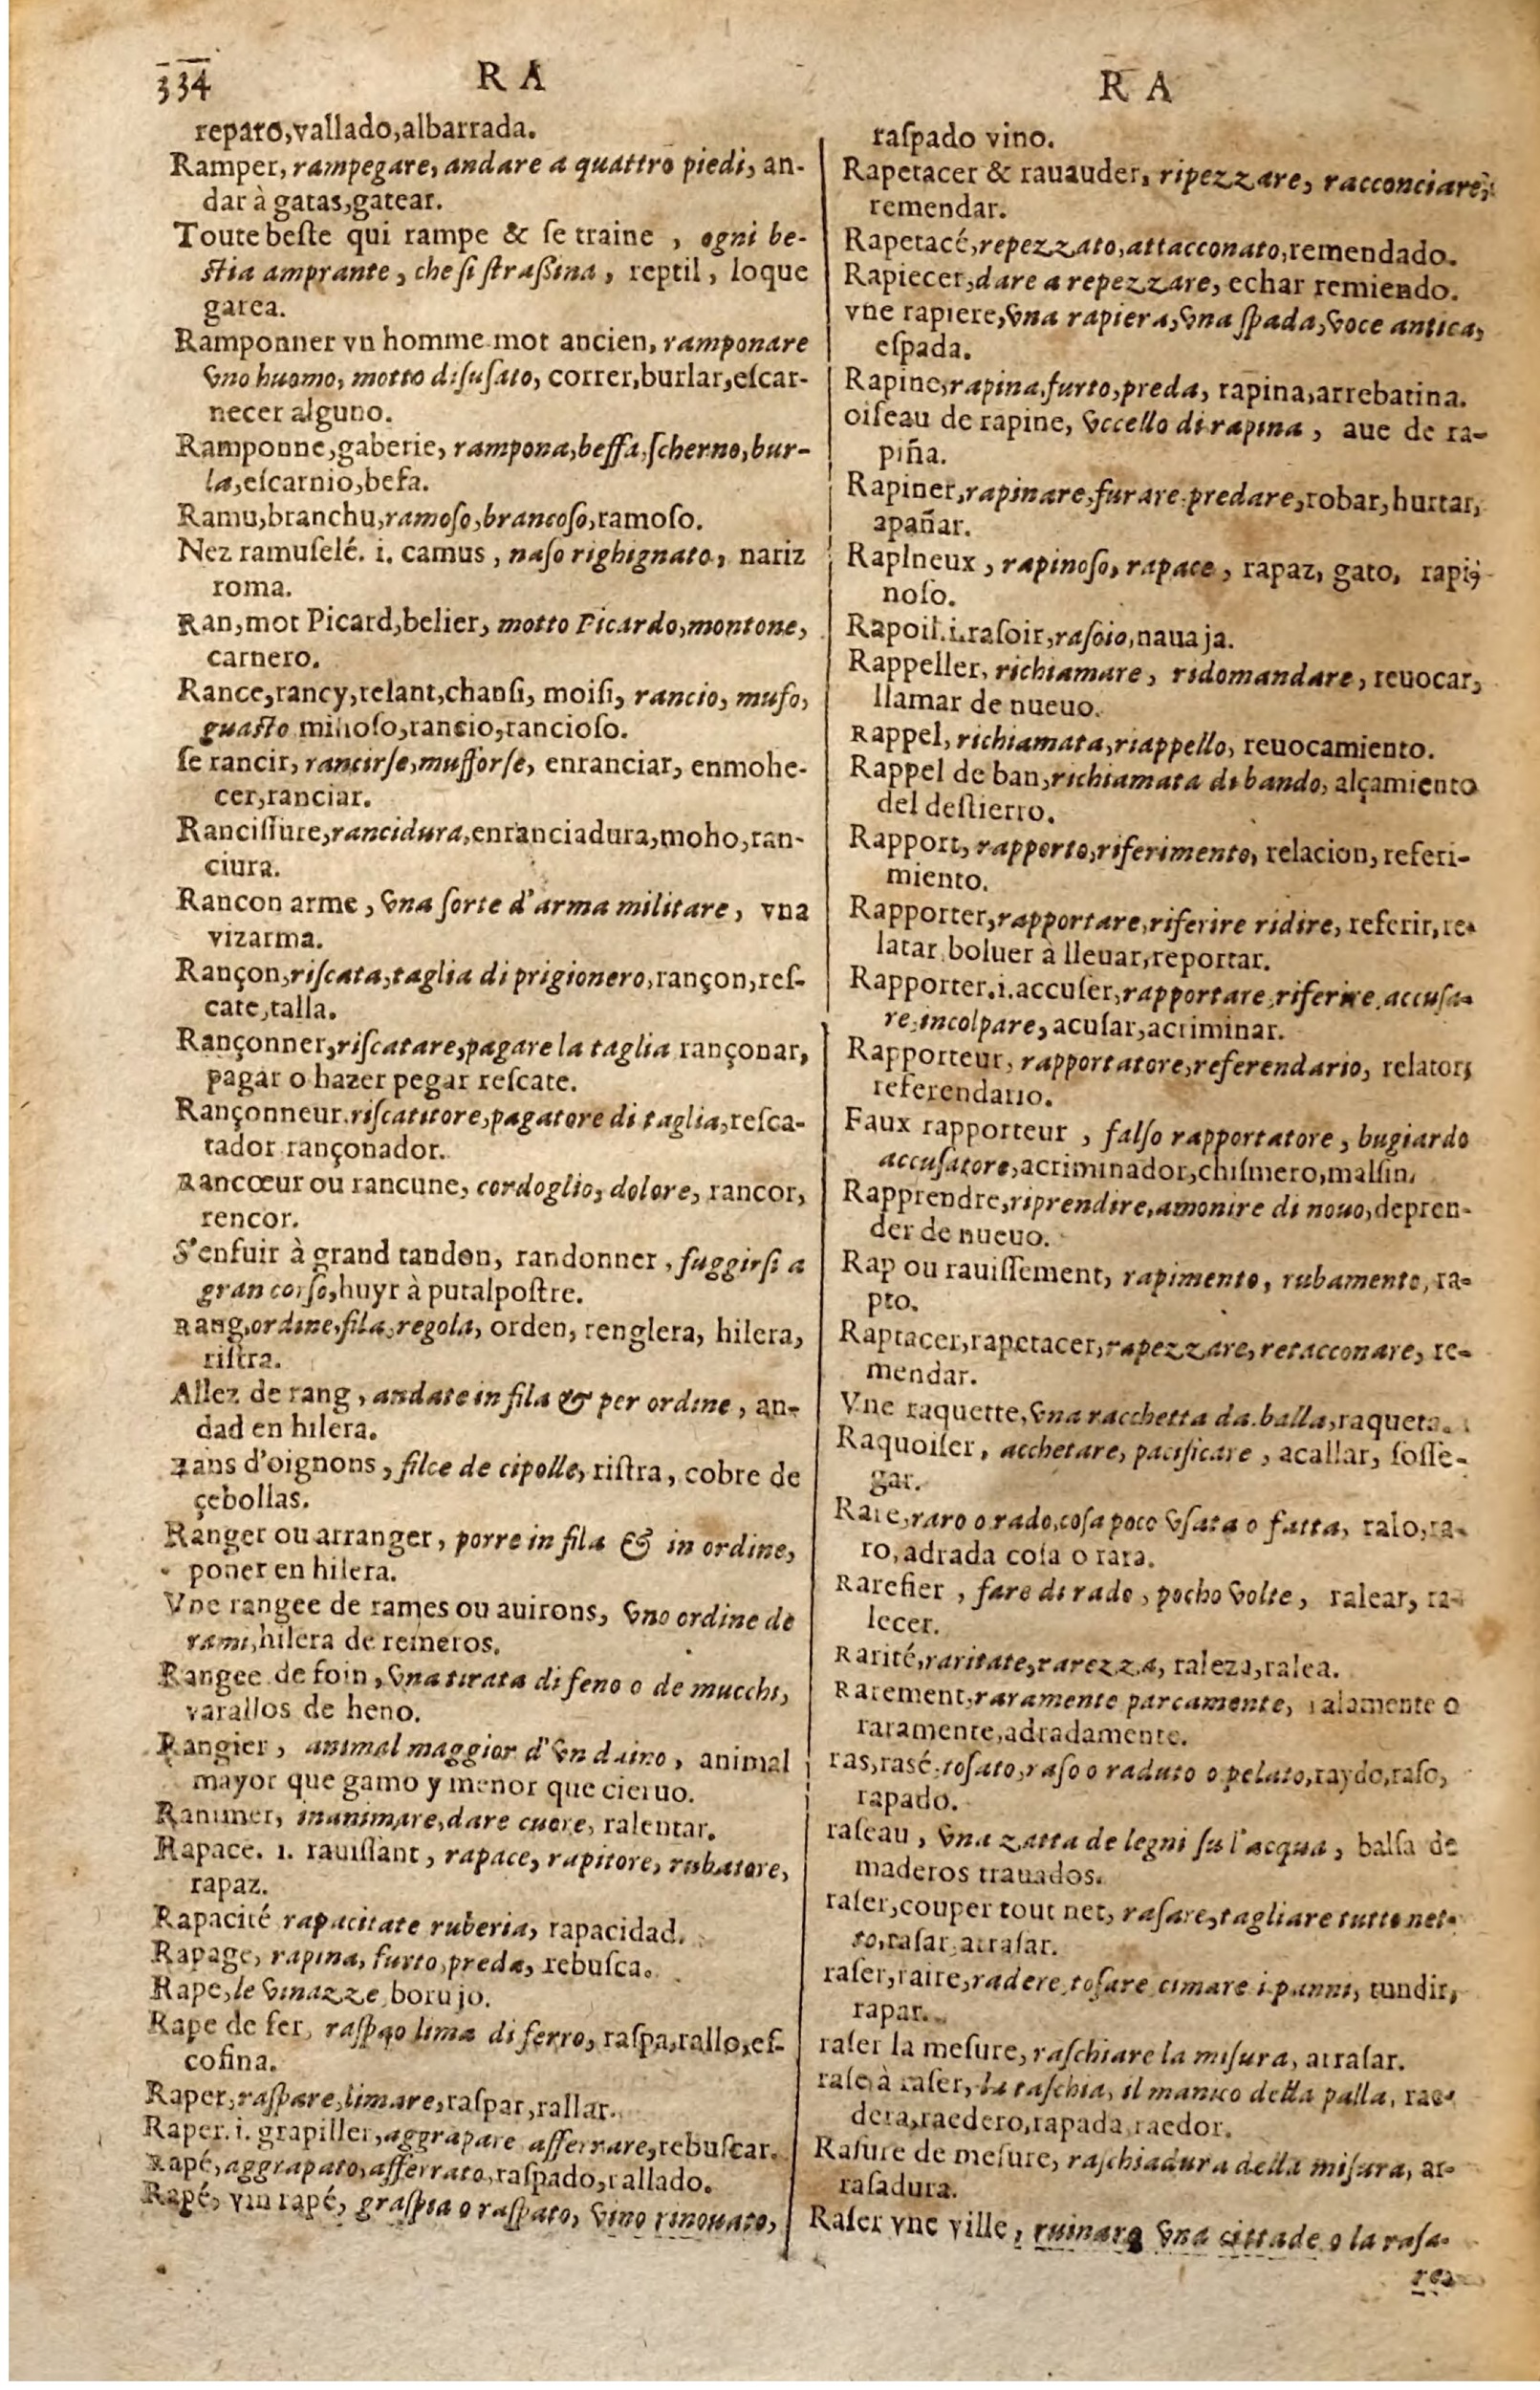 334
R A
R A
reparo,vallado,albarrada.
Ramper, rampegare, andare a quattro piedi, an-
dar à gatas,gatear.
Toute beſte qui rampe & ſe traine , ogni be-
ſtia amprante , che ſi ſtraßina , reptil , loque
gatea.
Ramponner vn homme mot ancien, ramponare
vno huomo, motto diſuſato, correr,burlar,eſcar-
necer alguno.
Ramponne,gaberie, rampona,beffa,ſcherno,bur-
la,eſcarnio,befa.
Ramu,branchu,ramoſo,brancoſo,ramoſo.
Nez ramuſelé. i. camus , naſo righignato , nariz
roma.
Ran,mot Picard,belier, motto Picardo,montone,
carnero.
Rance,rancy,relant,chanſi, moiſi, rancio, mufo,
guaſto mihoſo,rancio,rancioſo.
ſe rancir, rancirſe,mufforſe, enranciar, enmohe-
cer,ranciar.
Ranciſſure,rancidura,enranciadura,moho,ran-
ciura.
Rancon arme , vna ſorte d'arma militare , vna
vizarma.
Rançon,riſcata,taglia di prigionero,rançon,reſ-
cate,talla.
Rançonner,riſcatare,pagare la taglia rançonar,
pagar o hazer pegar reſcate.
Rançonneur.riſcatitore,pagatore di taglia,reſca-
tador rançonador.
Rancœur ou rancune, cordoglio, dolore, rancor,
rencor.
S'enfuir à grand randon, randonner , fuggirſi a
gran corſo,huyr à putalpoſtre.
Rang,ordine,fila,regola, orden, renglera, hilera,
riſtra.
Allez de rang , andate in fila & per ordine , an-
dad en hilera.
Rans d'oignons , filce de cipolle, riſtra, cobre de
çebollas.
Ranger ou arranger , porre in fila & in ordine,
poner en hilera.
Vne rangee de rames ou auirons, vno ordine de
rami,hilera de remeros.
Rangee de foin , vna tirata di feno o de mucchi,
varallos de heno.
Rangier , animal maggior d'vn daino , animal
mayor que gamo y menor que cieruo.
Ranimer, inanimare,dare cuore, ralentar.
Rapace. i. rauiſſant , rapace, rapitore, rubatore,
rapaz.
Rapacité rapacitate ruberia, rapacidad.
Rapage, rapina, furto,preda, rebuſca.
Rape,le vinazze,borujo.
Rape de fer, raſpao lima di ferro, raſpa,rallo,eſ-
cofina.
Raper,raſpare,limare,raſpar,rallar.
Raper. i. grapiller,aggrapare afferrare,rebuſcar.
Rapé,aggrapato,afferrato,raſpado,rallado.
Rapé, vin rapé, graſpia o raſpato, vino rinouato,
raſpado vino.
Rapetacer & rauauder, ripezzare, racconciare,
remendar.
Rapetacé,repezzato,attacconato,remendado.
Rapiecer,dare a repezzare, echar remiendo.
vne rapiere,vna rapiera,vna ſpada,voce antica,
eſpada.
Rapine,rapina,furto,preda, rapina,arrebatina.
oiſeau de rapine, vccello di rapina , aue de ra-
piña.
Rapiner,rapinare,furare predare,robar,hurtar,
apañar.
Rapineux , rapinoſo, rapace , rapaz, gato, rapiñ-
noſo.
Rapoil.i.raſoir,raſoio,nauaja.
Rappeller, richiamare, ridomandare , reuocar,
llamar de nueuo.
Rappel, richiamata,riappello, reuocamiento.
Rappel de ban,richiamata di bando, alçamiento
del deſtierro.
Rapport, rapporto,riferimento, relacion, referi-
miento.
Rapporter,rapportare,riferire ridire, referir,re-
latar boluer à lleuar,reportar.
Rapporter.i.accuſer,rapportare,riferire,accuſa-
re,incolpare, acuſar,acriminar.
Rapporteur, rapportatore,referendario, relator,
referendario.
Faux rapporteur , falſo rapportatore , bugiardo
accuſatore,acriminador,chiſmero,malſin.
Rapprendre,riprendire,amonire di nouo,depren-
der de nueuo.
Rap ou rauiſſement, rapimento, rubamento, ra-
pto.
Raptacer,rapetacer,rapezzare, retacconare, re-
mendar.
Vne raquette,vna racchetta da balla,raqueta.
Raquoiſer, acchetare, pacificare , acallar, ſoſſe-
gar.
Rare,raro o rado,coſa poco vſata o fatta, ralo,ra-
ro,adrada coſa o rara.
Rarefier , fare di rado , pocho volte , ralear, ra-
lecer.
Rarité,raritate,rarezza, raleza,ralea.
Rarement,raramente parcamente, ralamente o
raramente,adradamente.
ras,rasé,toſato,raſo o raduto o pelato,raydo,raſo,
rapado.
raſeau , vna zatta de legni ſu l'acqua , balſa de
maderos trauados.
raſer,couper tout net, raſare,tagliare tutto net-
to,raſar,arraſar.
raſer,raire,radere,toſare cimare i panni, tundir,
rapar.
raſer la meſure, raſchiare la miſura, arraſar.
raſe à raſer, la raſchia, il manico della palla, rae-
dera,raedero,rapada raedor.
Raſure de meſure, raſchiadura della miſura, ar-
raſadura.
Raſer vne ville , ruinare vna cittade o la raſa-
re,